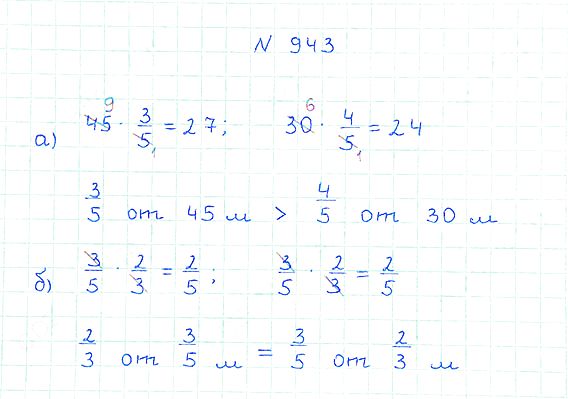 N 943
а) 45 · 3/5 = 27; 30 · 4/5 = 24
9 1 6 1
3/5 от 45 м > 4/5 от 30 м
б) 3/5 · 2/3 = 2/5; 3/5 · 2/3 = 2/5
2/3 от 3/5 м = 3/5 от 2/3 м